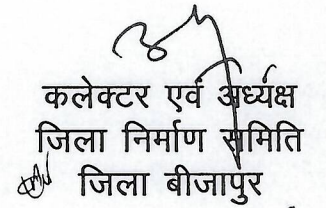 कलेक्टर एवं अर्ध्यक्ष
जिला निर्माण समिति
जिला बीजापुर